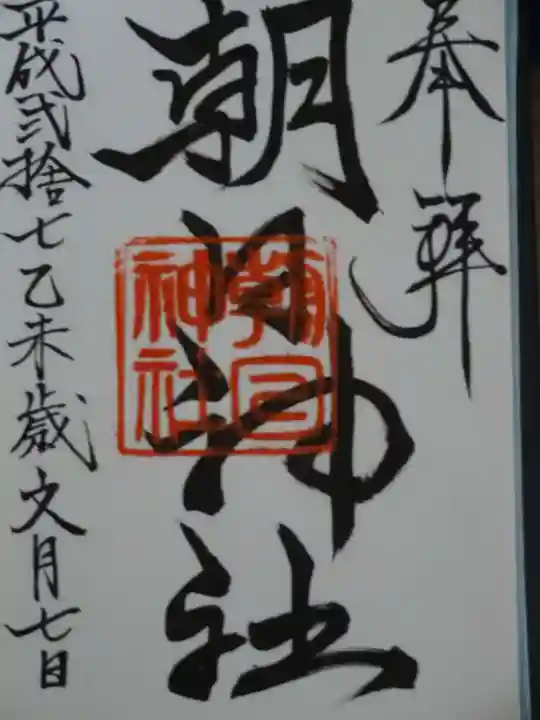 奉拝
朝日神社
朝日
神社
平成弐拾七乙未歳文月七日